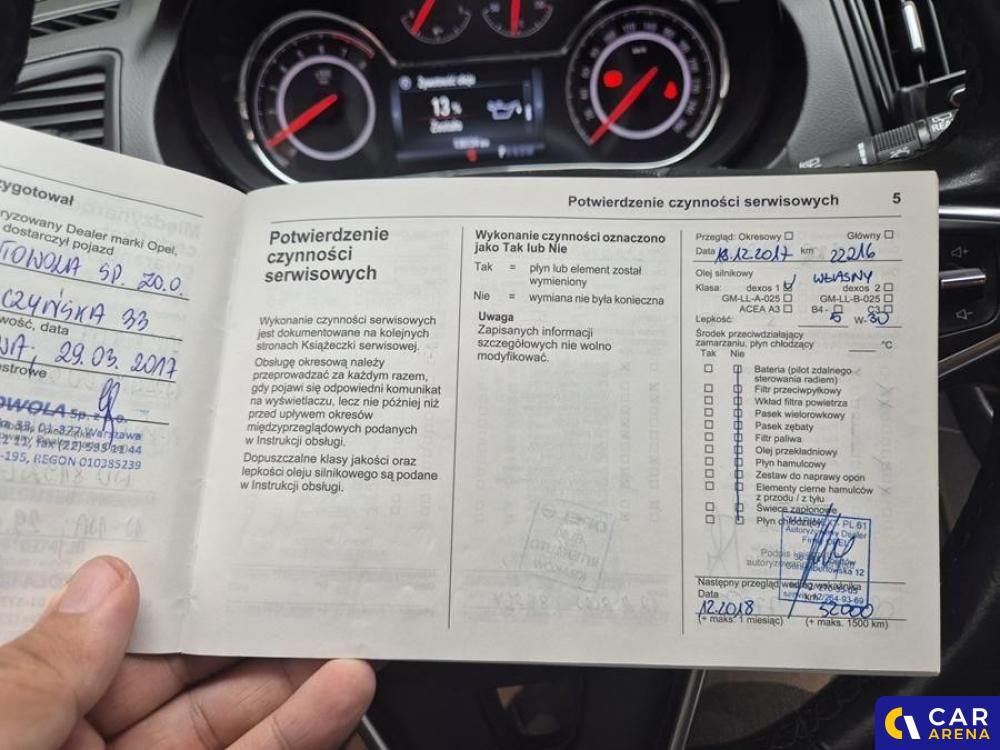 Żywotność oleju
13 %
Zostało
ygotował
ryzowany Dealer marki Opel,
dostarczył pojazd
TOWOLA SP. ZO.O.
CZYŃSKA 33
wość, data
WA, 29.03.2017
OWOLA Sp. z o.o.
01-377 Warszawa
-195, REGON 010385239
Potwierdzenie czynności serwisowych 5
Potwierdzenie
czynności
serwisowych
Wykonanie czynności serwisowych
jest dokumentowane na kolejnych
stronach Książeczki serwisowej.
Obsługę okresową należy
przeprowadzać za każdym razem,
gdy pojawi się odpowiedni komunikat
na wyświetlaczu, lecz nie później niż
przed upływem okresów
międzyprzeglądowych podanych
w Instrukcji obsługi.
Dopuszczalne klasy jakości oraz
lepkości oleju silnikowego są podane
w Instrukcji obsługi.
Wykonanie czynności oznaczono
jako Tak lub Nie
Tak = płyn lub element został
wymieniony
Nie = wymiana nie była konieczna
Uwaga
Zapisanych informacji
szczegółowych nie wolno
modyfikować.
Przegląd: Okresowy Główny
Data 18.12.2017 km 22216
Olej silnikowy WŁASNY
Klasa: dexos 1 dexos 2
GM-LL-A-025 GM-LL-B-025
ACEA A3 B4 - C3
Lepkość: 5 W- 30
Środek przeciwdziałający
zamarzaniu, płyn chłodzący °C
Tak Nie
Bateria (pilot zdalnego
sterowania radiem)
Filtr przeciwpyłkowy
Wkład filtra powietrza
Pasek wielorowkowy
Pasek zębaty
Filtr paliwa
Olej przekładniowy
Płyn hamulcowy
Zestaw do naprawy opon
Elementy cierne hamulców
z przodu / z tyłu
Świece zapłonowe
Płyn chłodzący
PL 61
Autoryzowany Dealer
Firmy OPEL
Następny przegląd według wskaźnika
Data km
12.2018 52000
(+ maks. 1 miesiąc) (+ maks. 1500 km)
CAR
ARENA